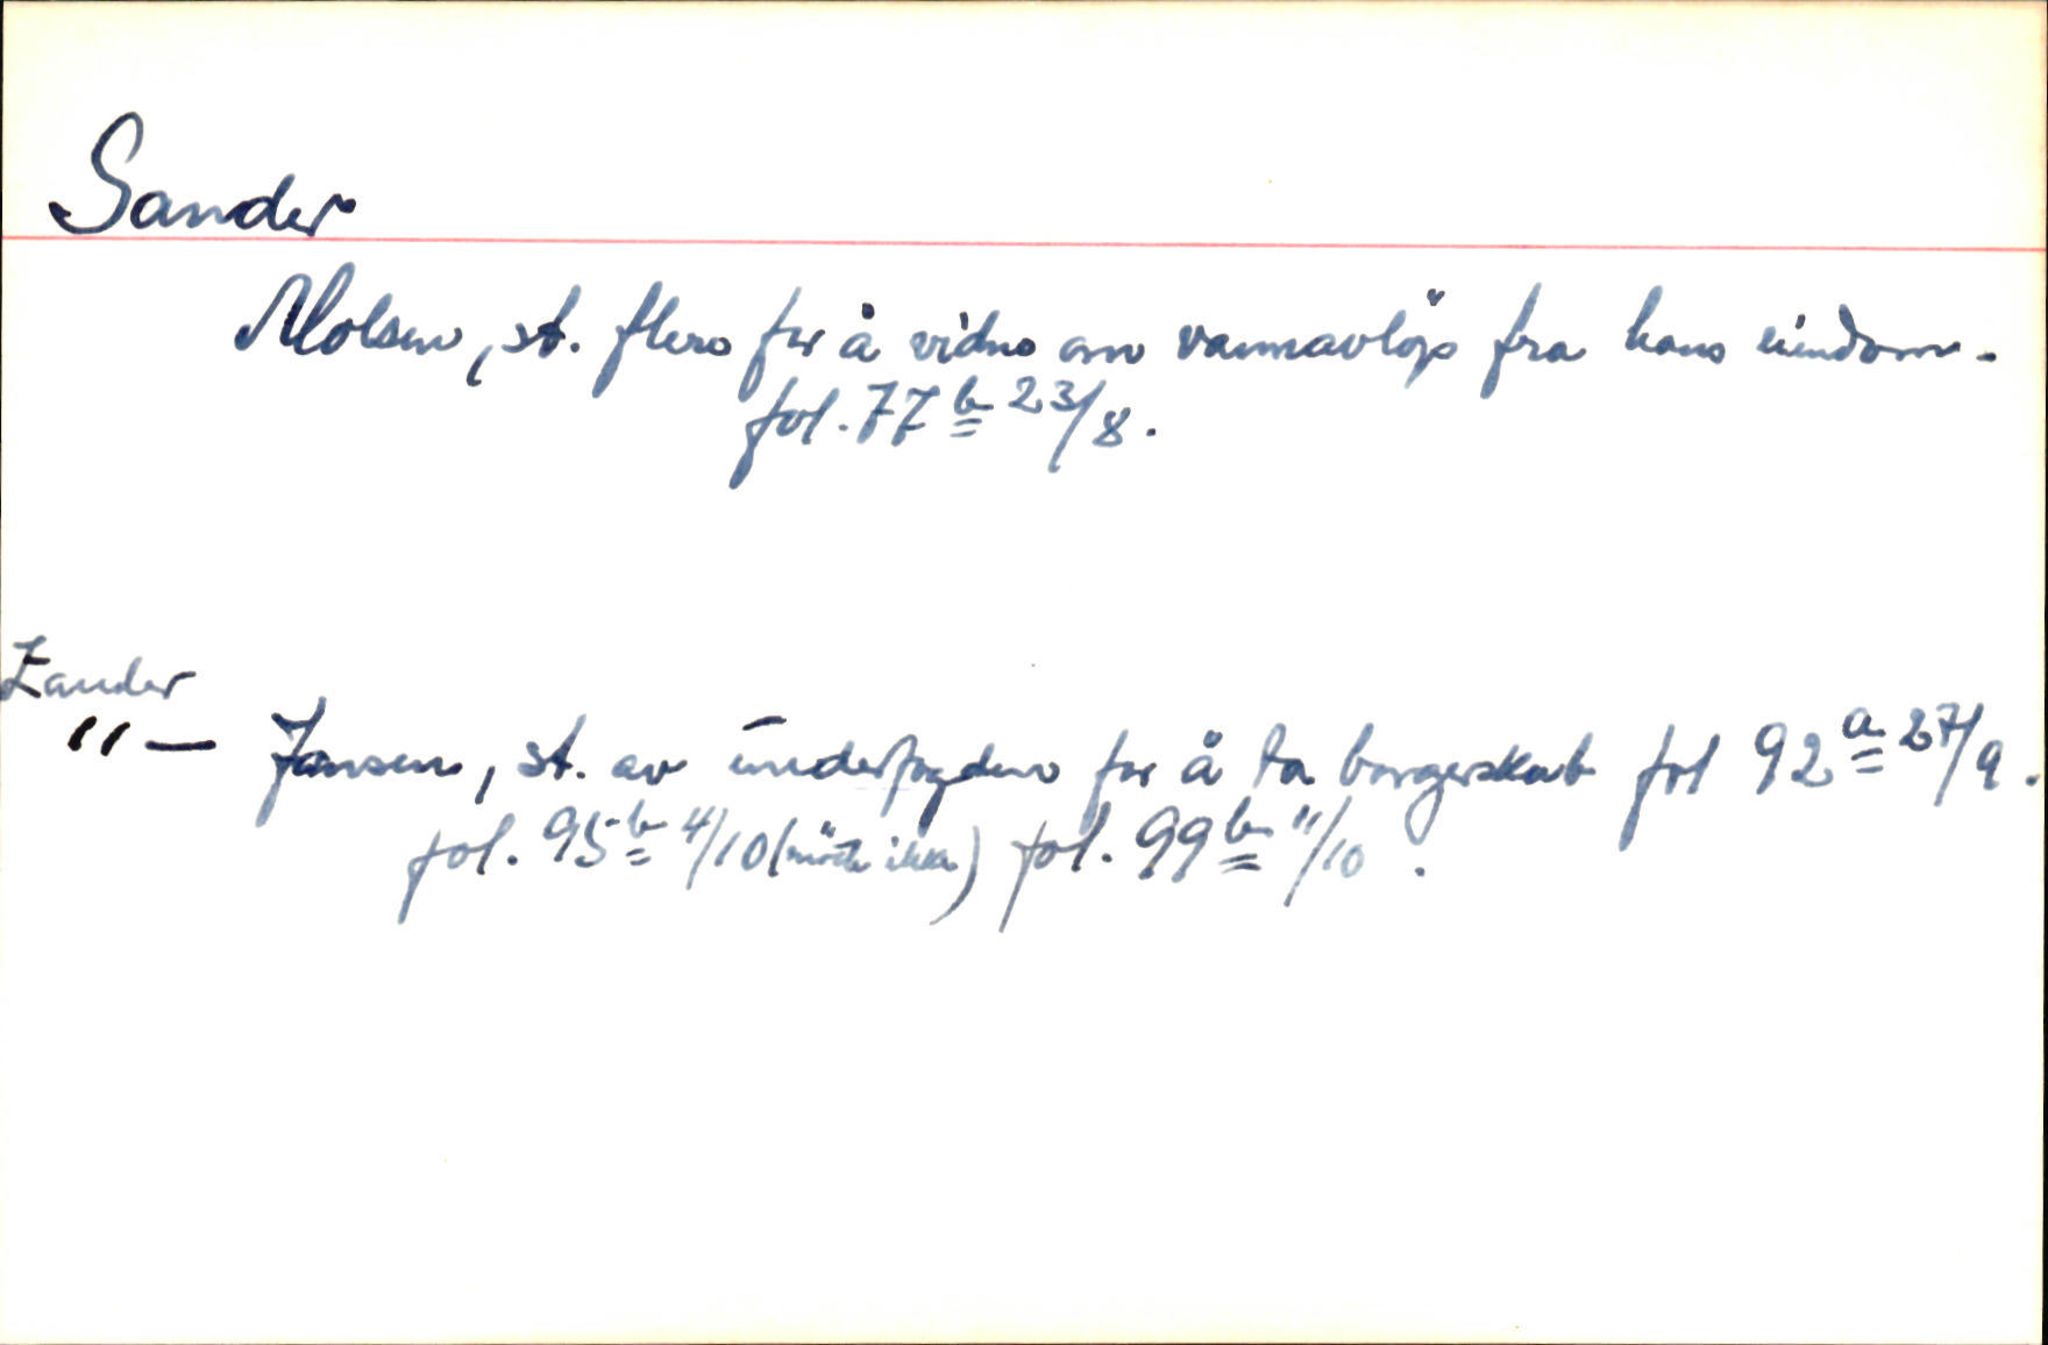 Sander
Molsen, st. flere for å vidne om vannavlöp fra hans eiendom.
fol. 77 b 23/8.
Zander
"— Jansen, st. av underfogden for å ta borgerskab fol 92 a 27/9.
fol. 95 b 4/10 (mötte ikke) fol. 99 b 11/10.